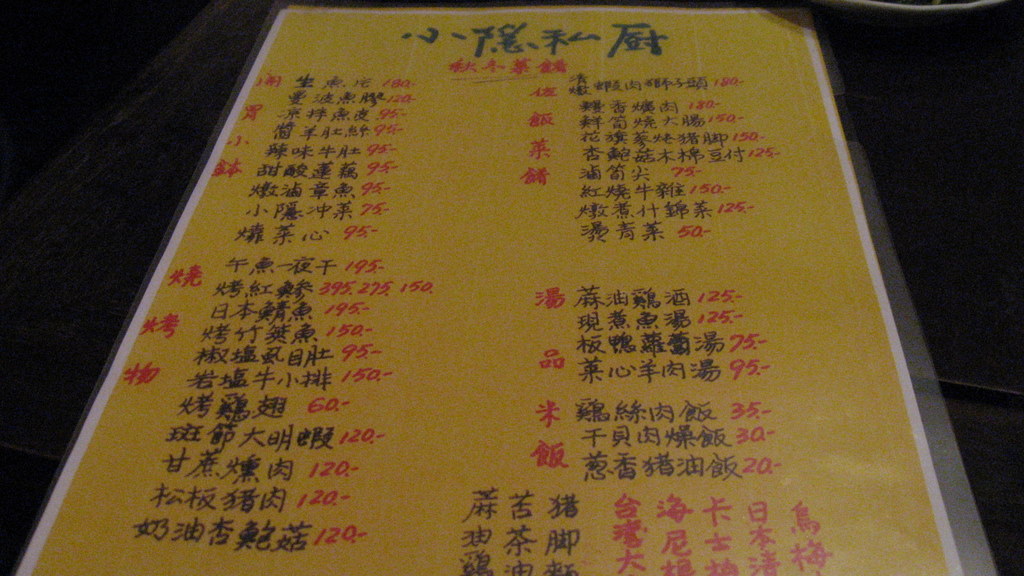 小隱私廚
秋冬菜餚
開胃小缽
生魚片 180.-
曼波魚膠 120.-
涼拌魚皮 95.-
薑羊肚絲 95.-
辣味牛肚 95.-
甜酸蓮藕 95.-
燉滷章魚 95.-
小隱冲菜 75.-
燙菜心 95.-
燒烤物
午魚一夜干 195.-
烤紅蟳 395.275.150.
日本鯖魚 195.-
烤竹筴魚 150.-
椒塩虱目肚 95.-
岩塩牛小排 150.-
烤鷄翅 60.-
斑節大明蝦 120.-
甘蔗燻肉 120.-
松板猪肉 120.-
奶油杏鮑菇 120.-
佐飯菜餚
清燉蝦肉獅子頭 180.-
麵香爌肉 180.-
鮮筍燒大腸 150.-
花旗蔘炖猪脚 150.-
杏鮑菇木棉豆付 125.-
滷筍尖 75.-
紅燒牛雜 150.-
燉煮什錦菜 125.-
燙青菜 50.-
湯品
蔴油鷄酒 125.-
現煮魚湯 125.-
板鴨蘿蔔湯 75.-
菜心羊肉湯 95.-
米飯
鷄絲肉飯 35.-
干貝肉燥飯 30.-
蔥香猪油飯 20.-
蔴油鷄
苦茶油
猪脚麵
台灣大
海尼根
卡士柏
日本清
烏梅